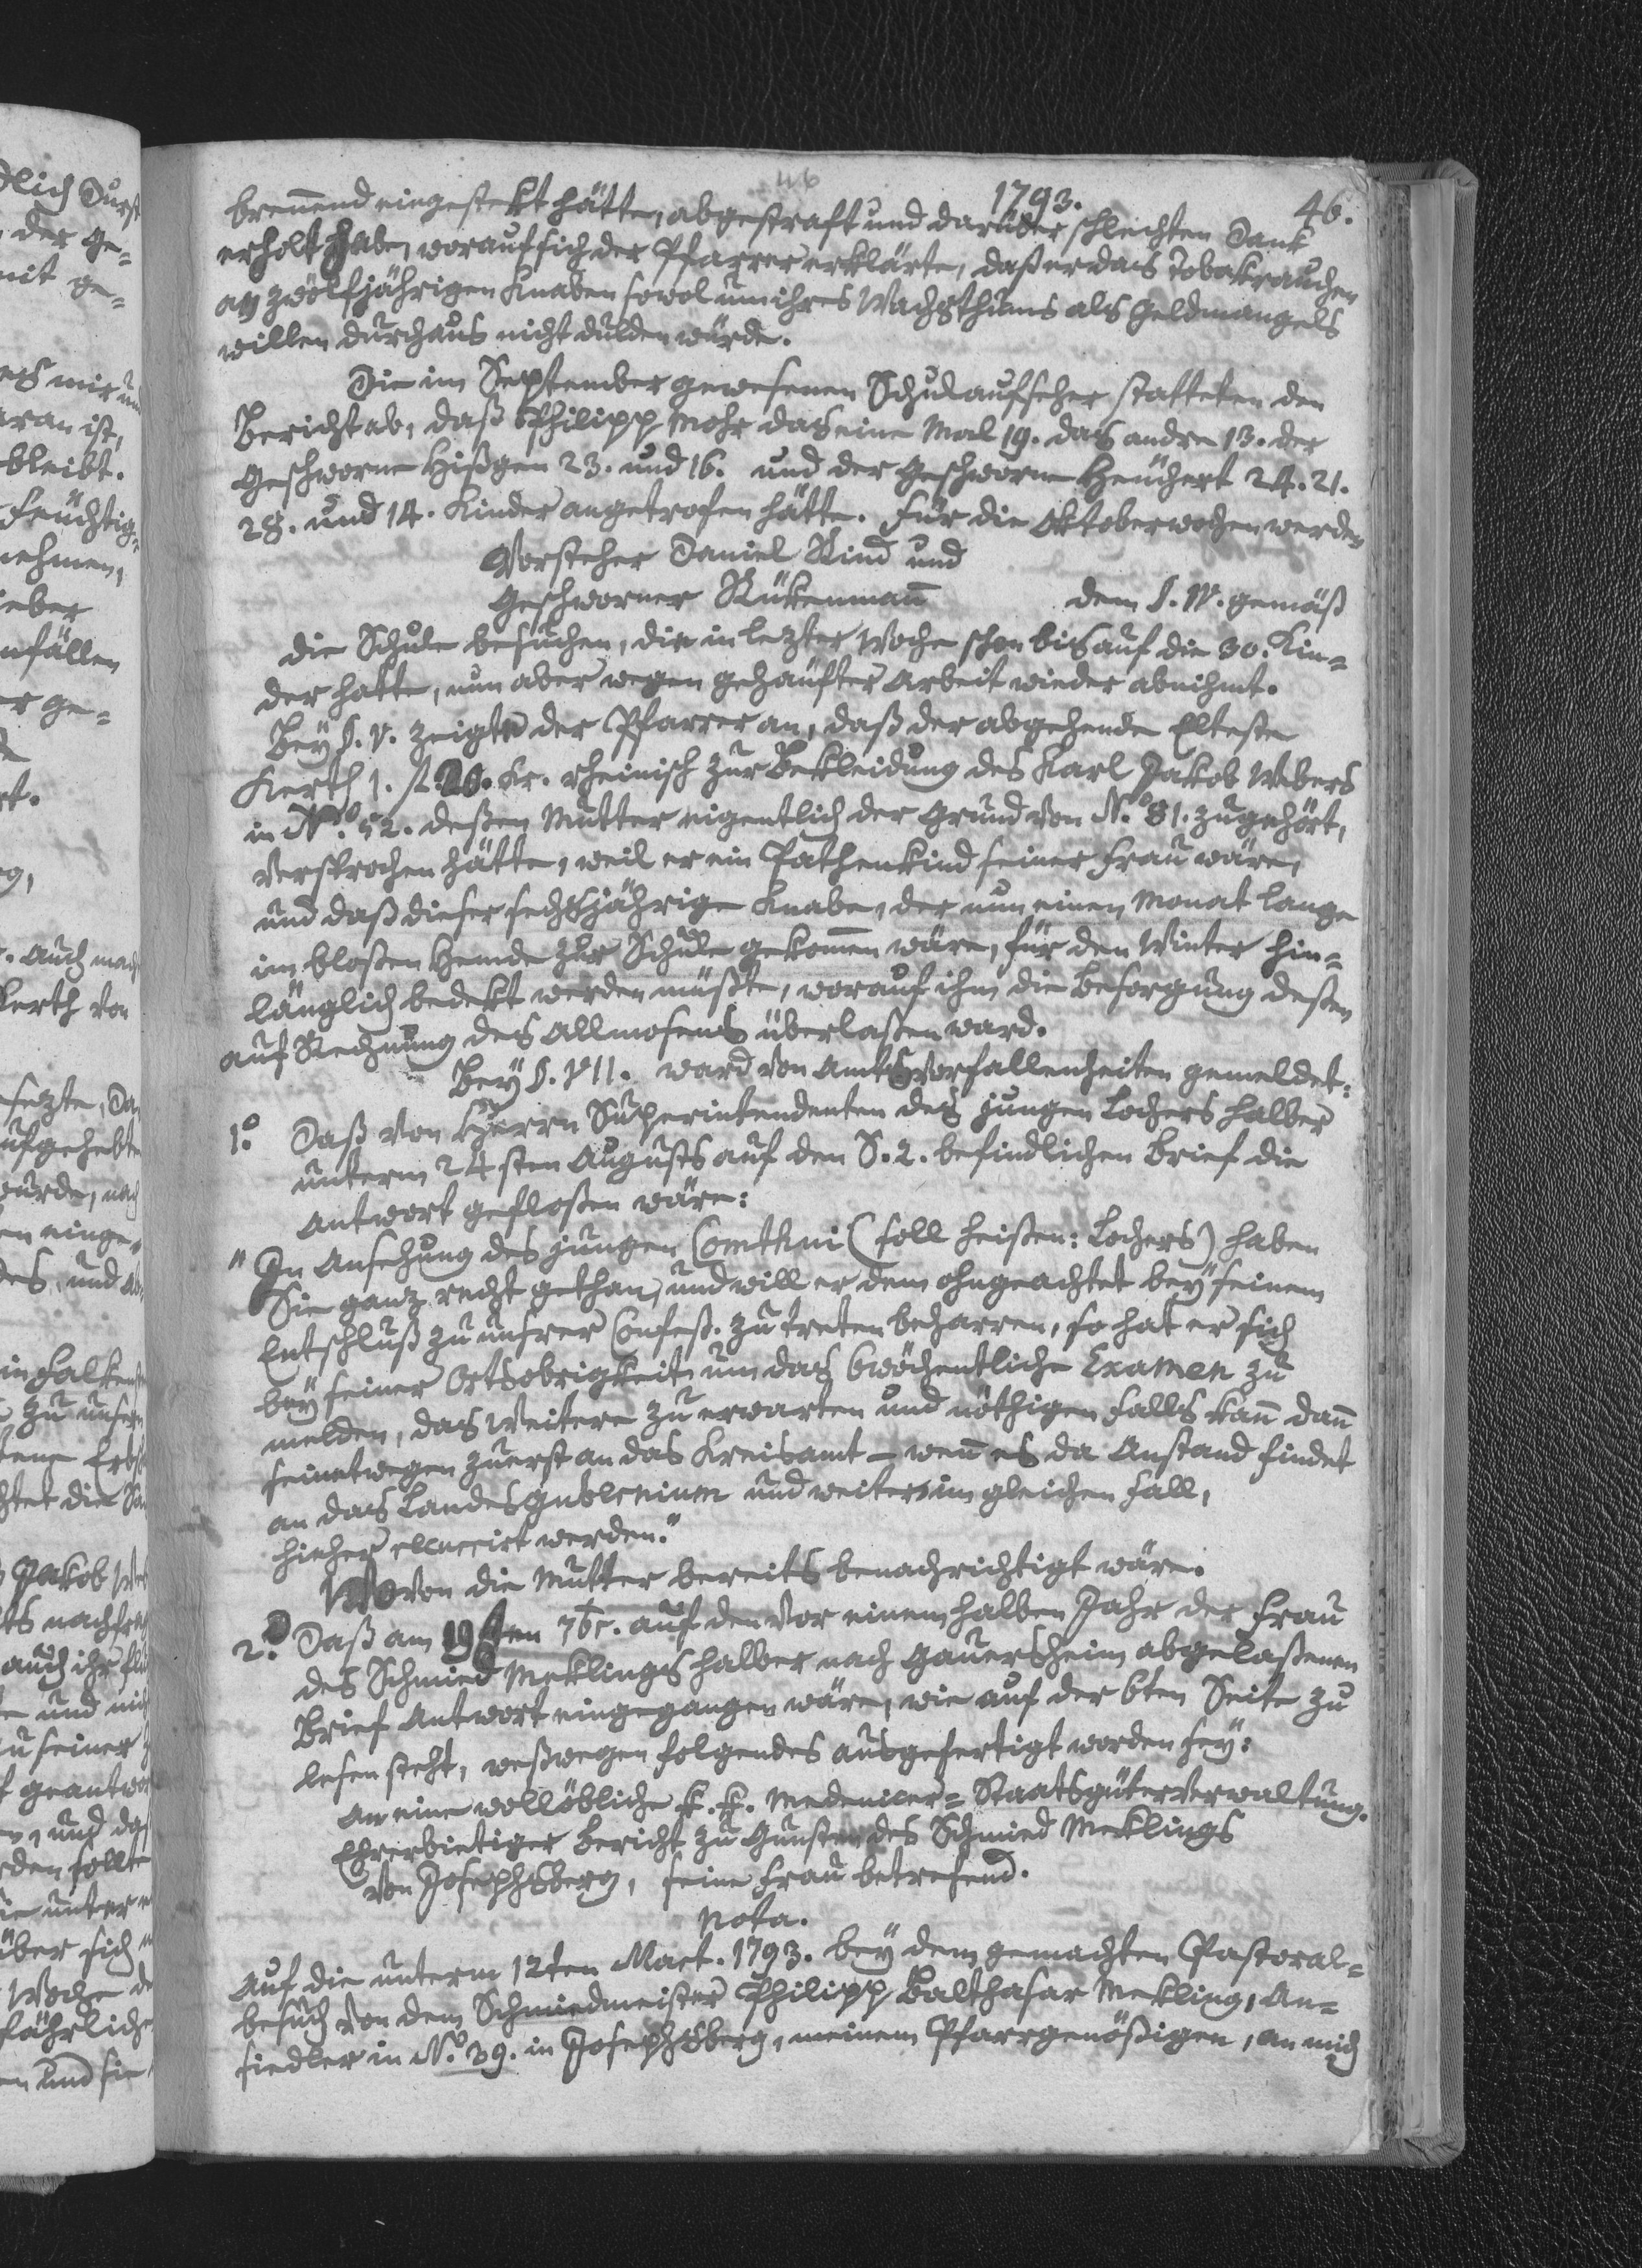 46
1793. 46.
brennend eingestekt hätten, abgestraft und darüber schlechten Dank
erholt haben, worauf sich der Pfarrer erklärte, daß er das Tobakrauchen
an zwölfjährigen Knaben sowol um ihres Wachsthums als Geldmangels
willen durchaus nicht dulden würde.
Die im September gewesenen Schulaufseher statteten den
Bericht ab, daß Philipp Mohr das eine Mal 19. das andre 13. der
Geschworne Hißgen 23. und 16. und der Geschworne Heuchert 24. 21.
28. und 14. Kinder angetrofen hätte. Für die Oktoberwochen werden
Vorsteher Daniel Rind und
Geschworner Rükenmann dem §. IV. gemäß
die Schule besuchen, die in lezter Woche schon bis auf die 30. Kin=
der hatte, nun aber wegen gehäufter Arbeit wieder abnihmt.
Bey §. V. zeigte der Pfarrer an, daß der abgehende Elteste
Kerth 1. fl. 20. Kr. rheinisch zur Bekleidung des Karl Jakob Webers
in N.o 52. deßen Mutter eigentlich der Grund von N.o 81. zugehört,
versprochen hätte, weil er ein Pathenkind seiner Frau wäre,
und daß dieser sechsjährige Knabe, der nun einen Monat lange
im bloßen Hemde zur Schule gekommen wäre, für den Winter hin=
länglich bedekt werden müßte, worauf ihm die Besorgung deßen
auf Rechnung des Allmosens überlaßen ward.
Bey §. VII. ward von Amtsvorfallenheiten gemeldet:
1.o Daß von Herrn Superintendenten des jungen Lochers halber
unterm 24sten Augusts auf den S. 2. befindlichen Brief die
Antwort gefloßen wäre:
"In Ansehung des jungen (soll heißen: Lochers) haben
Sie ganz recht gethan, und will er dem ohngeachtet bey seinem
Entschluß zu unsrer Confeß. zu treten beharren, so hat er sich
bey seiner Ortsobrigkeit um das 6wöchentliche Examen zu
melden, das Weitere zu erwarten und nöthigen Falls kann dann
seinetwegen zuerst an das Kreisamt – wenn es da Anstand findet
an das Landesgubernium und weiters im gleichen Fall,
hieher werden."
Wovon die Mutter bereits benachrichtigt wäre.
2.o Daß am 19ten 7br. auf den vor einem halben Jahr der Frau
des Schmied Meklings halber nach Gauersheim abgelaßenen
Brief Antwort eingegangen wäre, wie auf der 6ten Seite zu
lesen steht, weßwegen folgendes ausgefertigt worden sey:
An eine wollöbliche k. k. Medenicer=Staatsgüterverwaltung.
Ehrerbietiger Bericht zu Gunsten des Schmied Meklings
von Josephsberg, seine Frau betrefend.
Nota.
Auf die unterm 12ten Mart. 1793. bey dem gemachten Pastoral=
besuch von dem Schmiedmeister Philipp Balthasar Mekling, An=
siedler in N.o 39. in Josephsberg, meinem Pfarrgenößigen, an mich